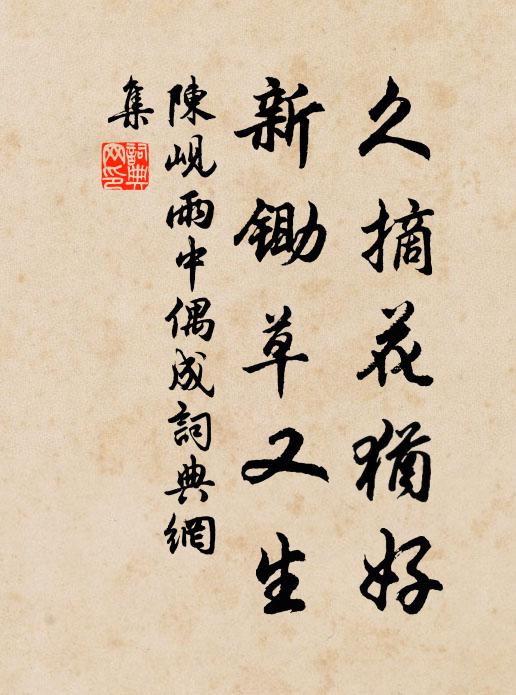 久摘花猶好
新鋤草又生
陳峴雨中偶成詞典網
集
詞典
网印